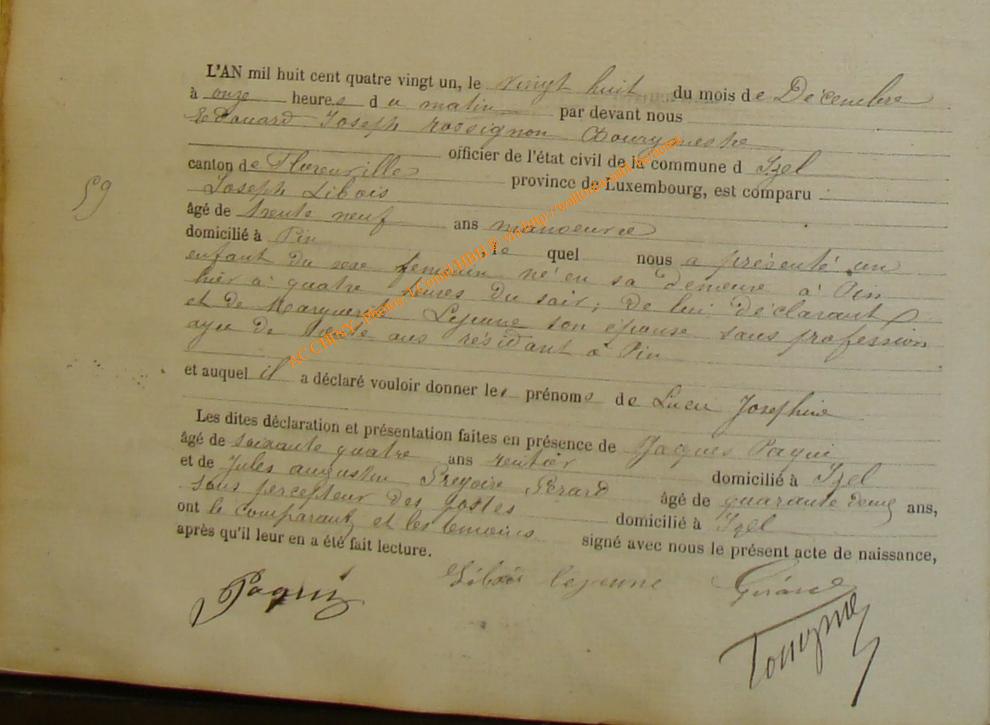 L'AN mil huit cent quatre vingt un, le vingt huit du mois de Décembre
à onze heures du matin par devant nous
Edouard Joseph rossignon Bourgmestre
officier de l'état civil de la commune d Izel
canton de Florenville province de Luxembourg, est comparu
Joseph Libois
âgé de trente neuf ans manoeuvre
domicilié à Pin, le quel nous a présenté un
enfant du sexe feminin né en sa demeure à Pin
hier à quatre heures du soir; de lui déclarant
et de Marguerit Lejeune son épouse sans profession
agee de ans résidant à Pin
et auquel il a déclaré vouloir donner les prénoms de Lucie Josephine
Les dites déclaration et présentation faites en présence de Jacques Paqui
âgé de soixante quatre ans rentier domicilié à Izel
et de Jules augustin Gregoire Gérard âgé de quarante deux ans,
sous percepteur des postes domicilié à Izel
ont le comparant et les temoins signé avec nous le présent acte de naissance,
après qu'il leur en a été fait lecture.
59
Paquis Libois lejeune Gérard